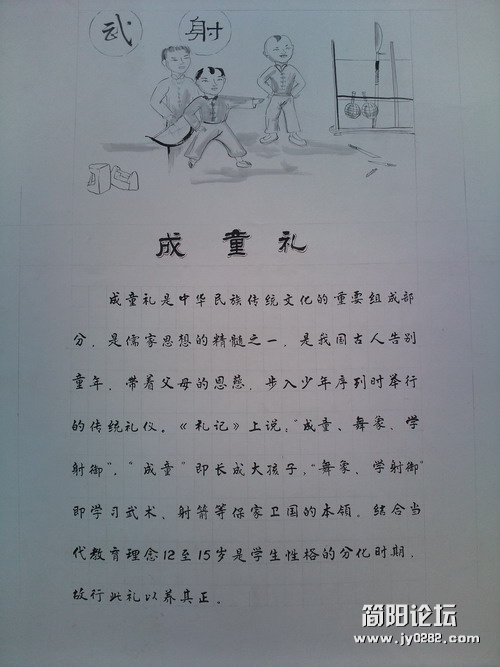 武 射
成童礼
成童礼是中华民族传统文化的重要组成部
分，是儒家思想的精髓之一，是我国古人告别
童年，带着父母的恩慈，步入少年序列时举行
的传统礼仪。《礼记》上说："成童、舞象、学
射御"，"成童"即长成大孩子，"舞象、学射御"
即学习武术、射箭等保家卫国的本领。结合当
代教育理念12至15岁是学生性格的分化时期，
故行此礼以养其正。
简阳论坛
www.jy0282.com